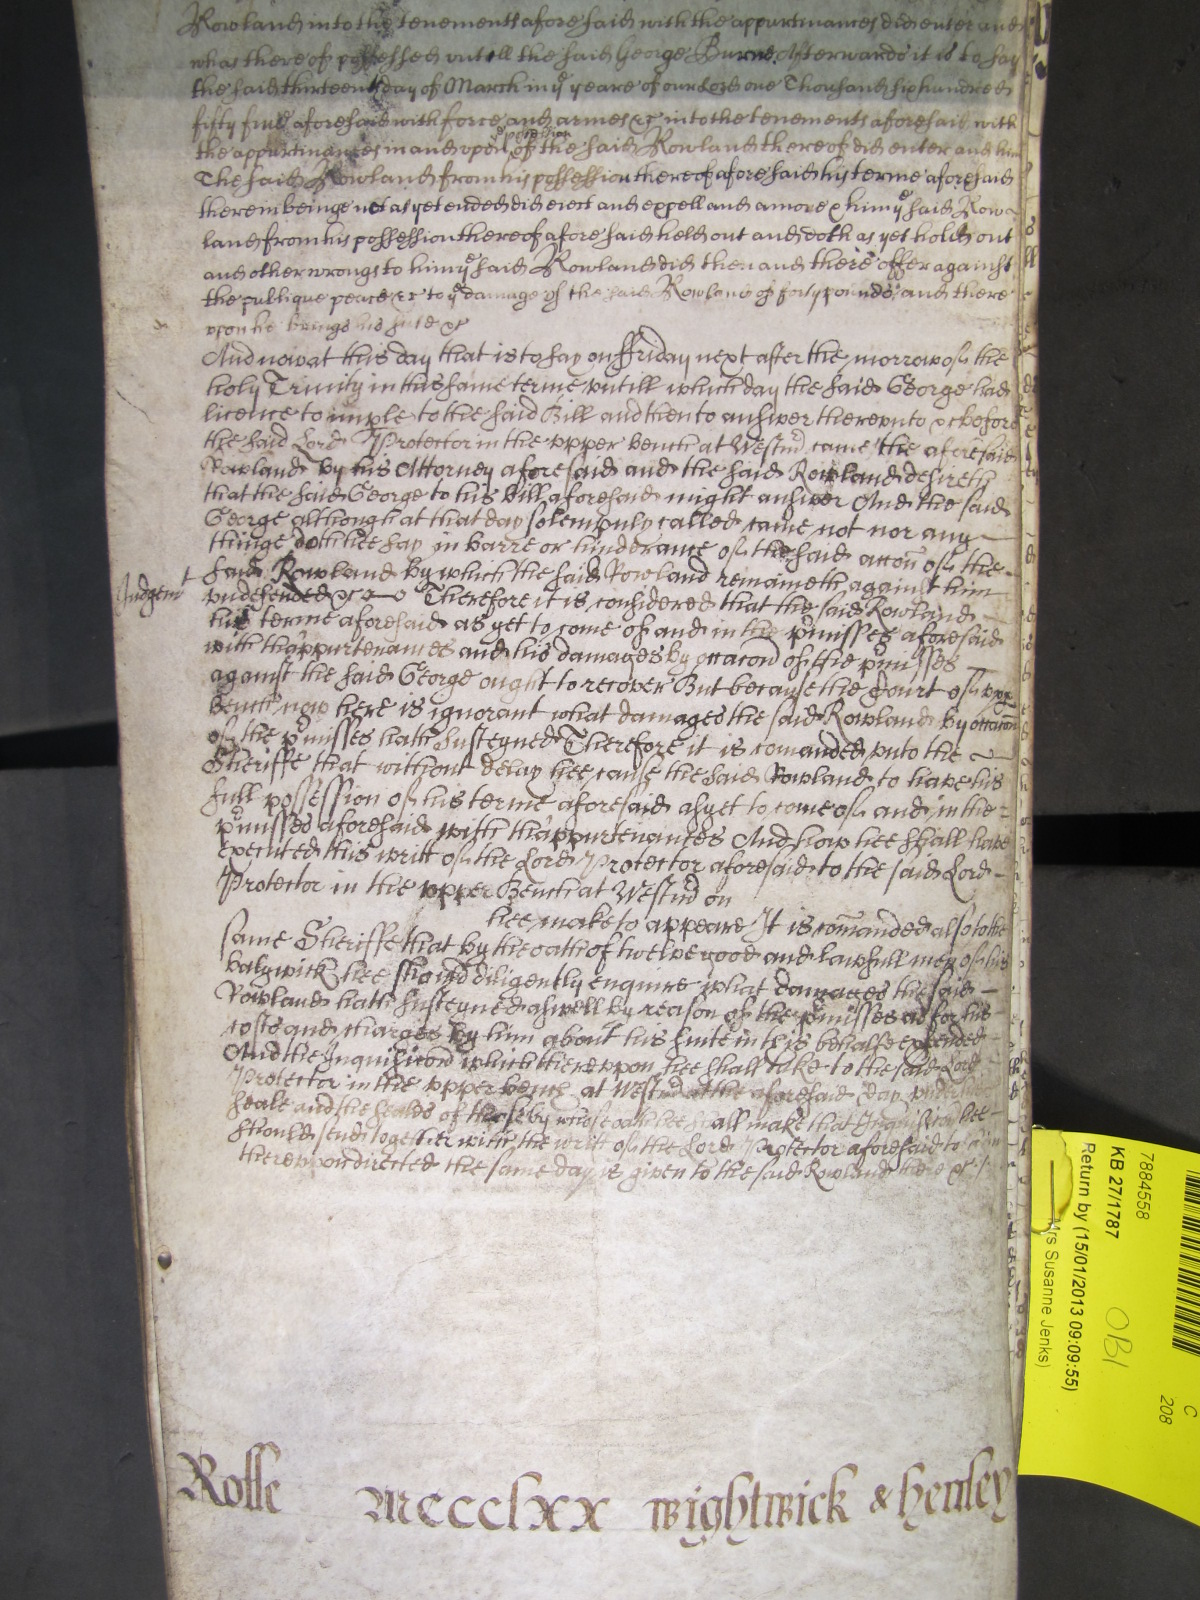 Rowland into the tenements aforesaid with the appurtinances did enter and
whas thereof possessed untill the said George Burne Afterwards it is to say
the said thirteenth day of March in ye yeare of our Lord one Thousand six hundred
fifty five aforesaid with force and armes &c into the tenements aforesaid with
the appurtinances in and upon ye possession of the said Rowland thereof did enter and him
The said Rowland from his possession thereof aforesaid his terme aforesaid
therein beinge not as yet ended did eiect and expell and amove & him ye said Row-
land from his possession thereof aforesaid held out and doth as yet hold out
and other wrongs to him ye said Rowland did then and there offer against
the publique peace &c to ye damage of the said Rowland of forty pounds and there
upon he brings his suite &c
And now at this day that is to say on Friday next after the morrow of the
holy Trinity in this same terme untill which day the said George had
licence to imple to the said Bill and then to answer thereunto &c before
the said Lord Protector in the upper bench at Westmr came the aforesaid
Rowland by his Attorney aforesaid and the said Rowland desireth
that the said George to his bill aforesaid might answer And the said
George although at that day solempnly called came not nor any
thinge doth hee say in barre or hinderance of the said accon of the
said Rowland by which the said Rowland remaineth against him
Judgemt
undefended &c Therefore it is considered that the said Rowland
his terme aforesaid as yet to come of and in the p'misses aforesaid
with th'appurtenances and his damages by occacon of the p'misses
against the said George ought to recover But because the Court of upp
bench now here is ignorant what damages the said Rowland by occacon
of the p'misses hath susteyned Therefore it is comanded unto the
Sheriffe that without delay hee cause the said Rowland to have his
full possession of his terme aforesaid as yet to come of and in the
p'misses aforesaid with th'appurtenances And how hee shall have
executed this writt of the Lord Protector aforesaid to the said Lord
Protector in the upper Bench at Westmr on
hee make to appeare It is comanded also to the
same Sheriffe that by the oath of twelve good and lawfull men of his
baliwick hee should diligently enquire what damages the said
Rowland hath susteyned aswell by reason of the p'misses as for his
costs and charges by him about his suite in this behalfe expended
And the Inquisicon which thereupon hee shall take to the said Lord
Protector in the upper bench at Westmr at the aforesaid day under his
seale and the seales of those by whose oath hee shall make that Inquisicon hee
should send together with the writt of the Lord Protector aforesaid to him
thereupon directed the same day is given to the said Rowland here &c
Rolle MCCCClxx Wightwick & Henley
7884558
KB 27/1787
Return by (15/01/2013 09:09:55)
Mrs Susanne Jenks)
OBI
C
208